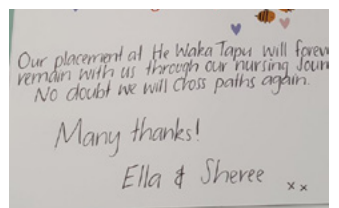 Our placement at He Waka Tapu will forever
remain with us through our nursing Jour
No doubt we will cross paths again.
Many thanks!
Ella & Sheree
x x